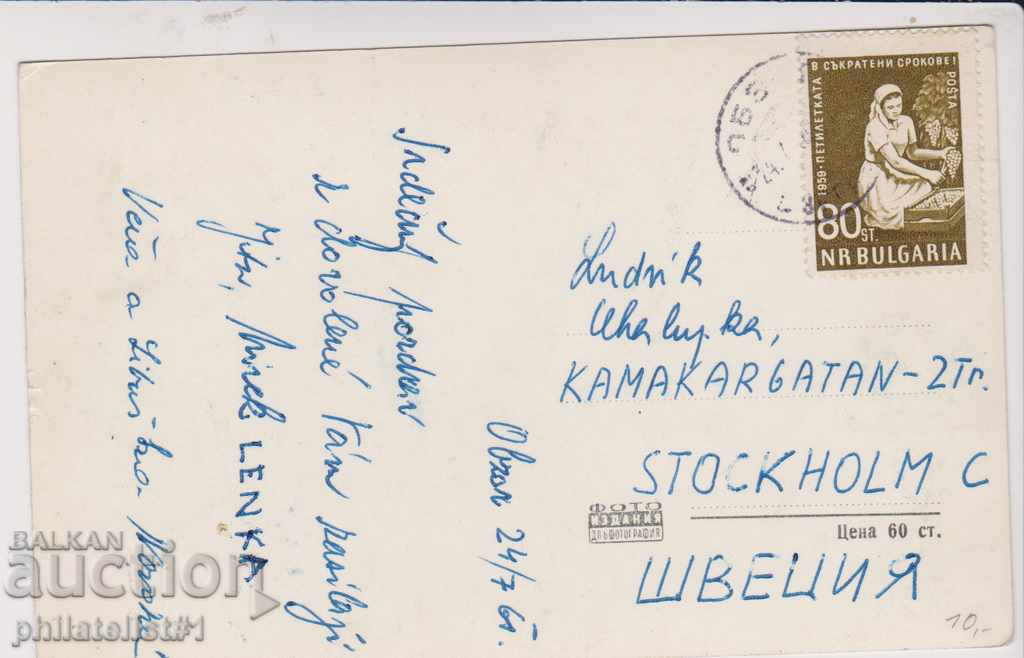 Srdečný pozdrav
z dovolené Vám zasílají
Jitn, Mirek LENKA
Věra a Libuška
Obzor 24/7 61.
В СЪКРАТЕНИ СРОКОВЕ!
1959·ПЕТИЛЕТКАТА
POŠTA
80 ST.
NR BULGARIA
Ludvík
Chalupka,
KAMAKARGATAN-2Tr.
STOCKHOLM C
ШВЕЦИЯ
ФОТО
ИЗДАНИЯ
ДП БЪЛФОТОГРАФИЯ
Цена 60 ст.
10,-
BALKAN
auction
philatelist#1